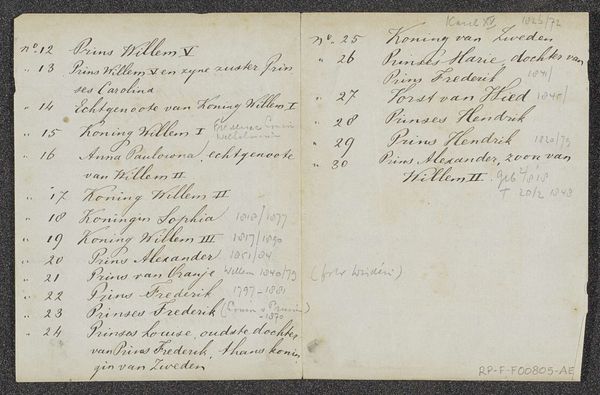 no. 12 Prins Willem V
" 13 Prins Willem V en zyne zuster Prin
ses Carolina
" 14 Echtgenoote van Koning Willem I
" 15 Koning Willem I
" 16 Anna Paulowna, echtgenoote
van Willem II
" 17 Koning Willem II
" 18 Koningin Sophia 1818/1877
" 19 Koning Willem III 1817/1890
" 20 Prins Alexander 1851/84
" 21 Prins van Oranje Willem 1840/79
" 22 Prins Frederik 1797-1881
" 23 Prinses Frederik
-1870
" 24 Prinses Louise, oudste dochter
van Prins Frederik, thans konin
gin van Zweden
Karel XV 1826/72
no. 25 Koning van Zweden
" 26 Prinses Marie, dochter van
Prins Frederik 1841/
" 27 Vorst van Wied 1845/
" 28 Prinses Hendrik
" 29 Prins Hendrik 1820/79
" 30 Prins Alexander, zoon van
Willem II geb 2/8 1818
† 20/2 1848
RP-F-F00805-AE